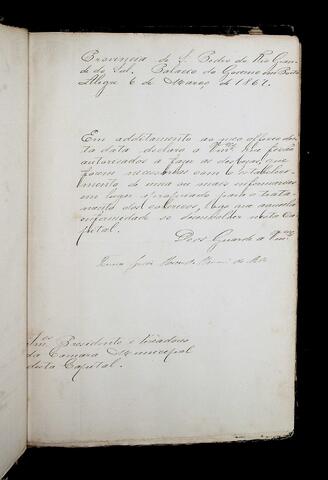 Provincia de S. Pedro do Rio Gran-
de do Sul. Palacio do Governo em Porto
Alegre 6 de Março de 1867.
Em additamento ao meo officio des-
ta data declaro a Vm.ces que ficão
autorisados a fazer as despezas que
forem necessarias com o estabeleci-
mento de uma ou mais enfermarias
em lugar apropriado para o trata-
mento dos colericos, logo que aquella
enfermidade se desenvolver nesta Ca-
pital.
Deos Guarde a Vm.ces
Snr.es Presidente e Vereadores
da Camara Municipal
desta Capital.